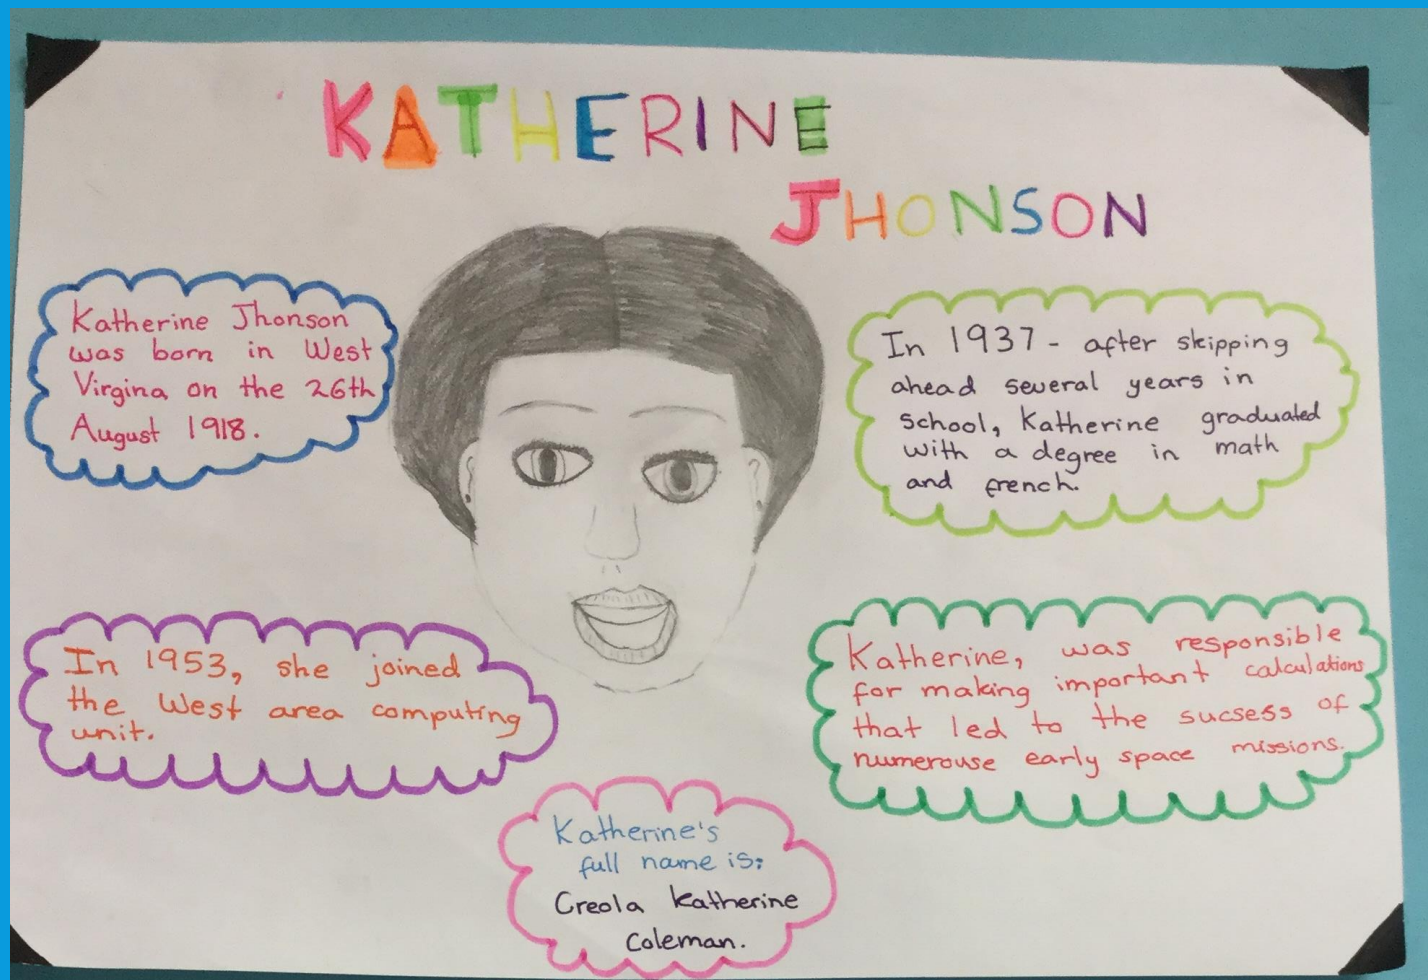 KATHERINE
JHONSON
Katherine Jhonson
was born in West
Virgina on the 26th
August 1918.
In 1937 - after skipping
ahead several years in
school, Katherine graduated
with a degree in math
and french.
In 1953, she joined
the West area computing
unit.
Katherine, was responsible
for making important calculations
that led to the sucsess of
numerouse early space missions.
Katherine's
full name is:
Creola Katherine
Coleman.